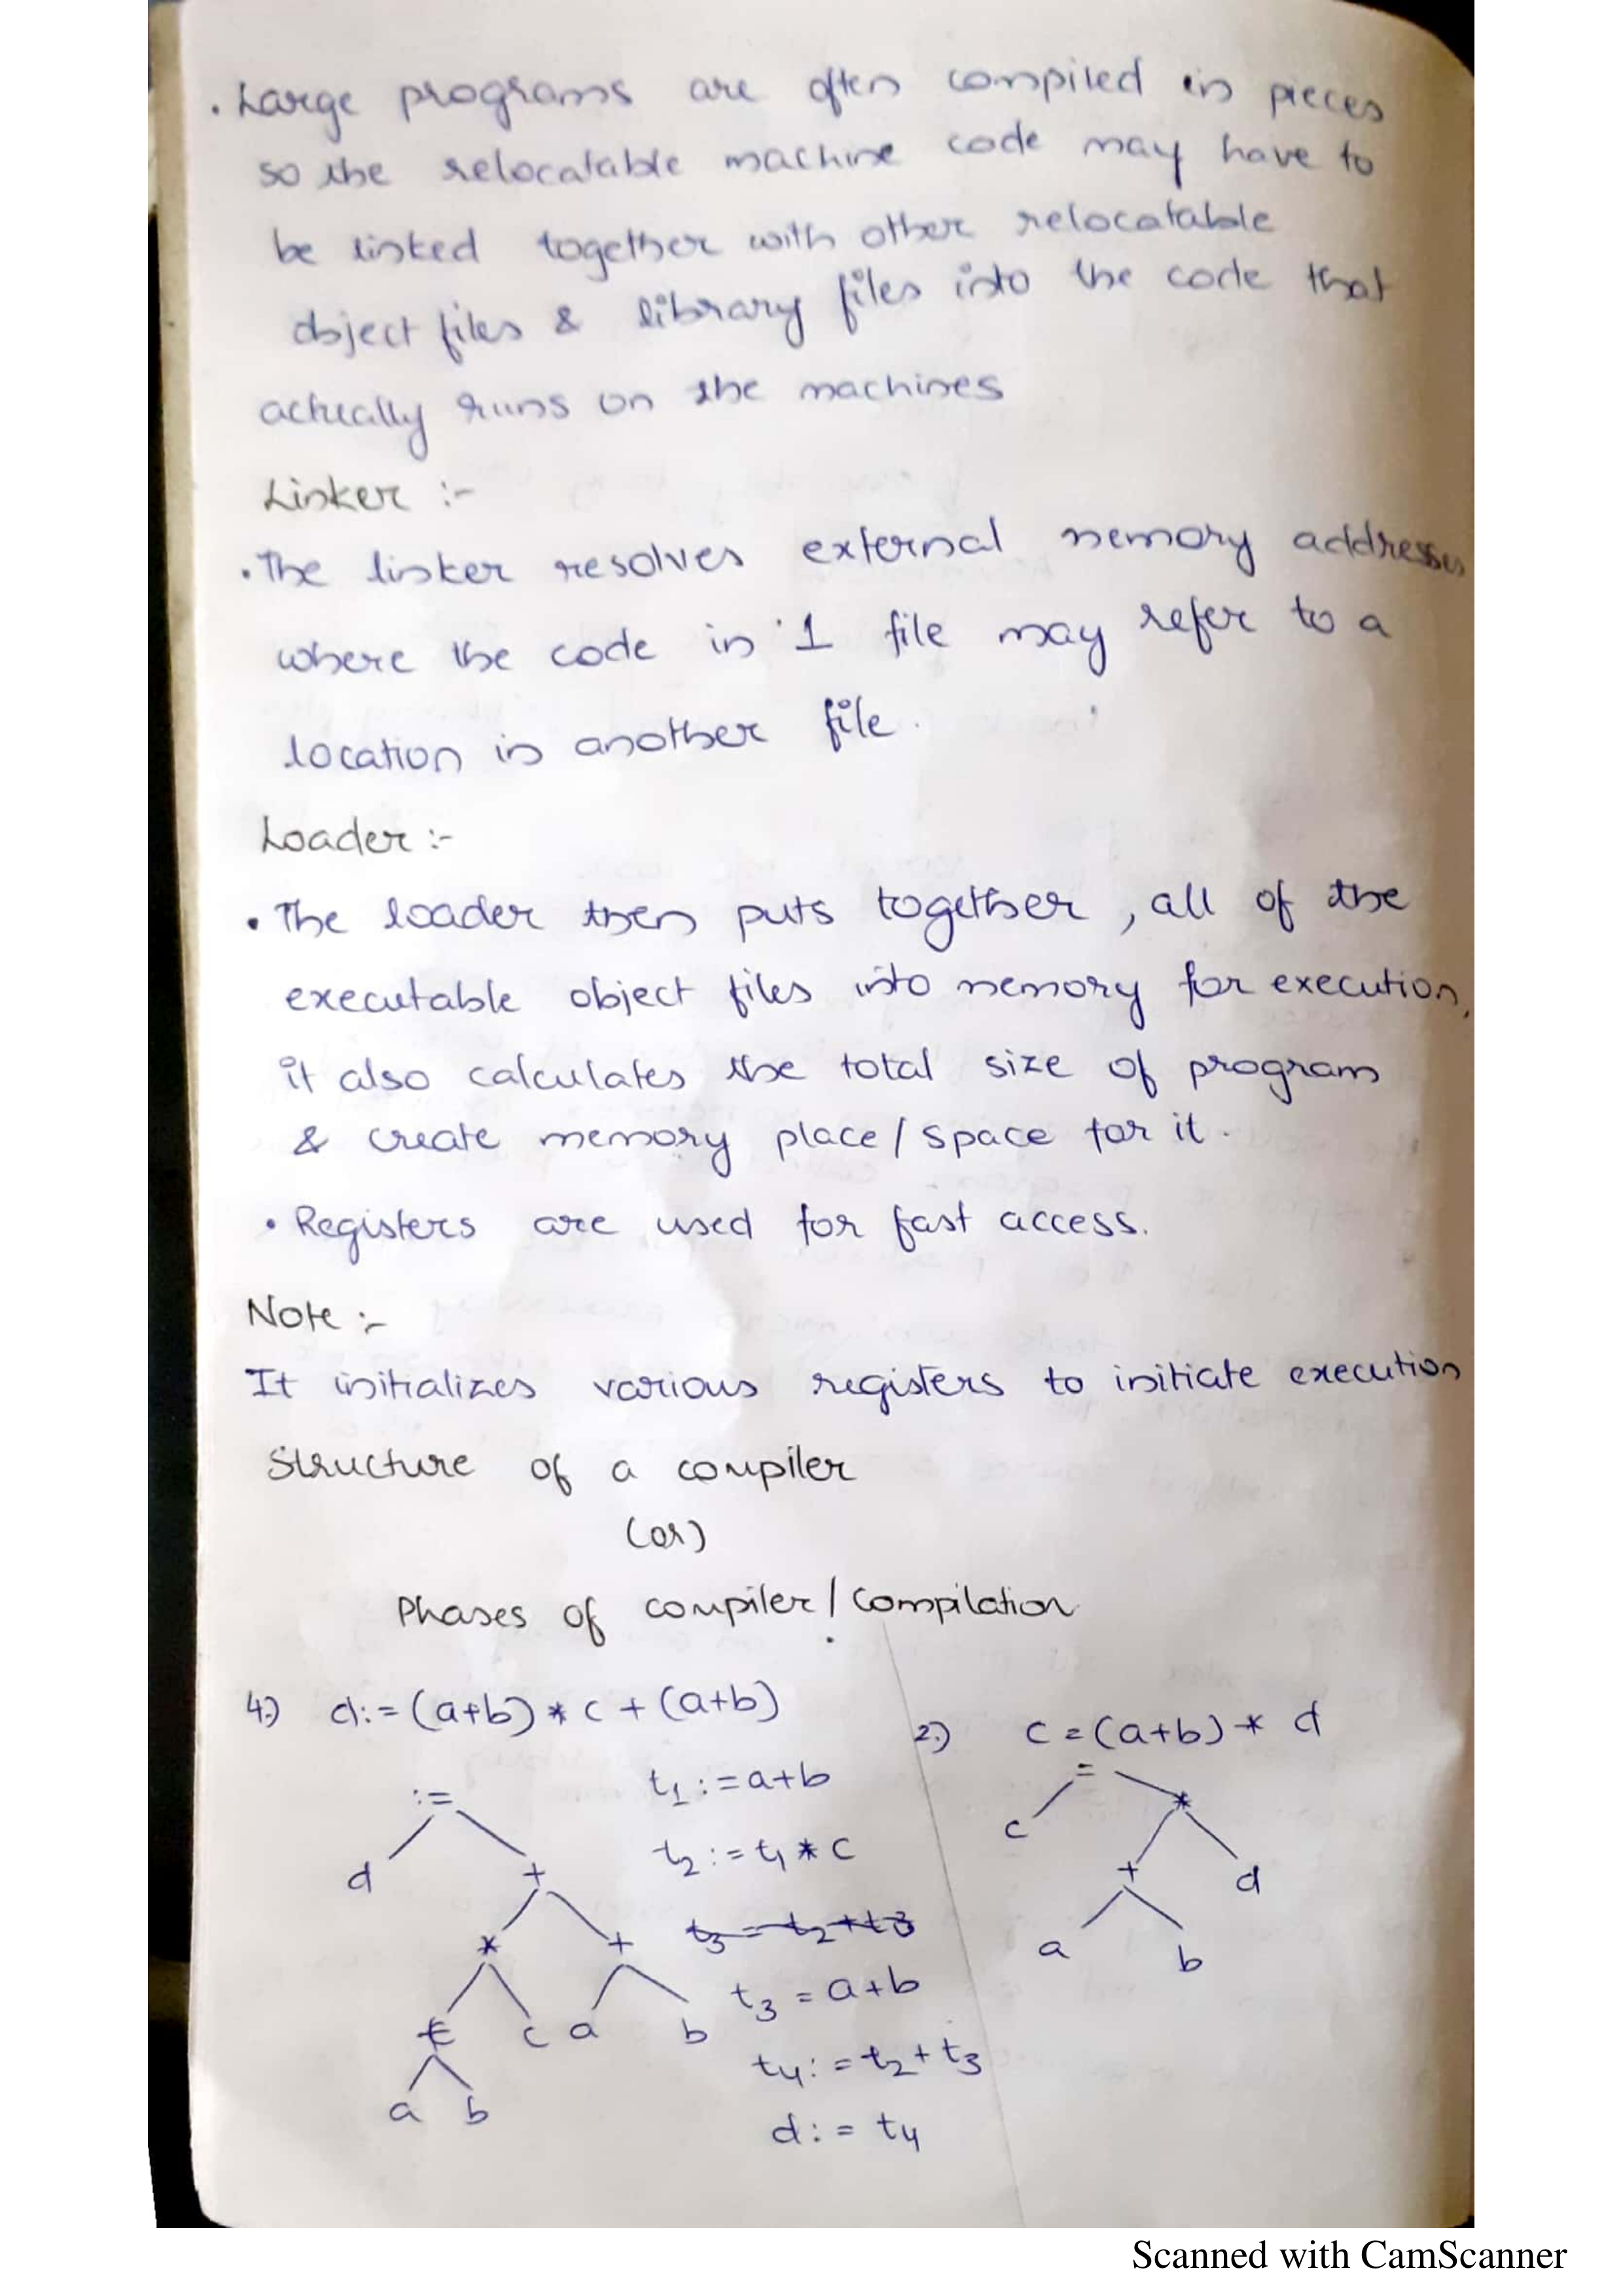 . Large programs are often compiled in pieces
so the relocatable machine code may have to
be linked together with other relocatable
object files & library files into the code that
actually runs on the machines
Linker :-
. The linker resolves external memory addresses
where the code in 1 file may refer to a
location in another file.
Loader :-
• The loader then puts together, all of the
executable object files into memory for execution,
it also calculates the total size of program
& create memory place / space for it.
• Registers are used for fast access.
Note :-
It initializes various registers to initiate execution
Structure of a compiler
(or)
Phases of compiler / Compilation
4.) d:= (a+b) * c + (a+b)
t1 := a+b
t2 := t1 * c
t3 = t2 + t3
t3 = a+b
t4 := t2 + t3
d := t4
:=
d +
* +
+ c a b
a b
2.) c = (a+b) * d
=
c *
+ d
a b
Scanned with CamScanner